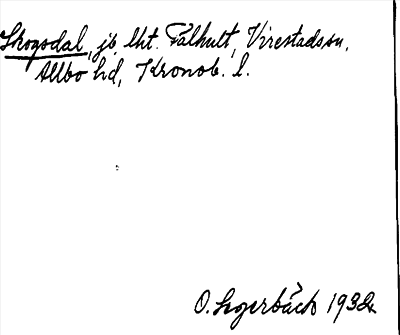 Skogsdal, jb lht. Fälhult, Virestads sn,
Allbo hd, Kronob. l.
O. Segerbäck 1932